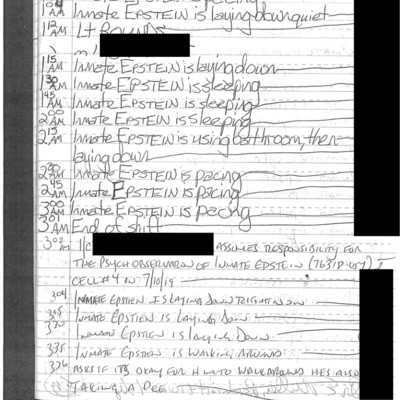 AM Inmate EPSTEIN is laying down quiet
1 12 AM Lt ROUNDS
1 15 AM Inmate EPSTEIN is laying down
1 30 AM Inmate EPSTEIN is sleeping
1 45 AM Inmate EPSTEIN is sleeping
2 00 AM Inmate EPSTEIN is sleeping
2 15 AM Inmate EPSTEIN is using bathroom, then
laying down
2 30 AM Inmate EPSTEIN is pacing
2 45 AM Inmate EPSTEIN is pacing
3 00 AM Inmate EPSTEIN is pacing
3 01 AM End of shift
3 02 AM I/C ASSUMES RESPONSIBILITY FOR
THE PSYCH OBSERVATION OF INMATE EPSTEIN (76318-054)
CELL #4 IN 7/10/19
304 INMATE EPSTIEN IS LAYING DOWN RIGHT NOW
315 INMATE EPSTIEN IS LAYING DOWN
320 INMATE EPSTIEN IS LAYING DOWN
335 INMATE EPSTIEN IS WALKING AROUND
336 ASKS IF ITS OKAY FOR HIM TO WALK AROUND HES ALSO
TAKING A PEE